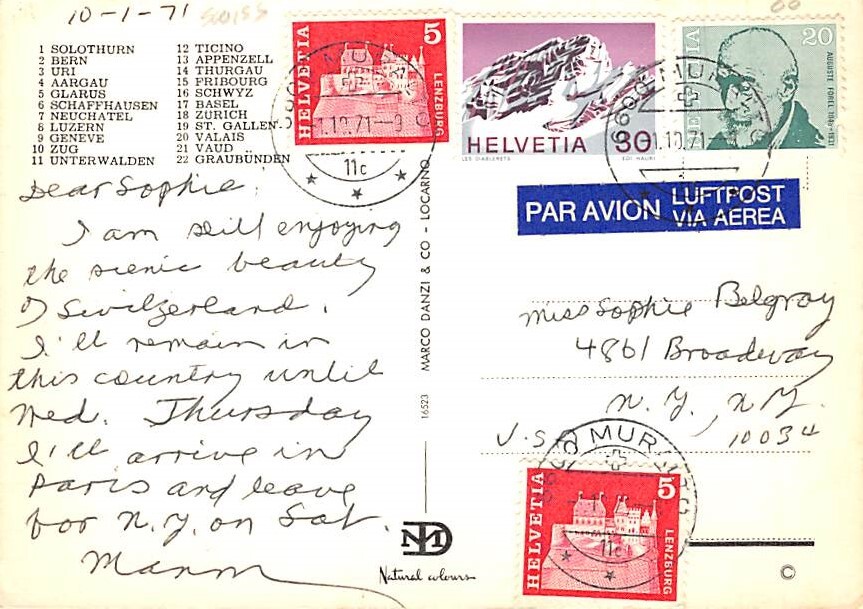 10-1-71 SWISS
1 SOLOTHURN
2 BERN
3 URI
4 AARGAU
5 GLARUS
6 SCHAFFHAUSEN
7 NEUCHATEL
8 LUZERN
9 GENEVE
10 ZUG
11 UNTERWALDEN
12 TICINO
13 APPENZELL
14 THURGAU
15 FRIBOURG
16 SCHWYZ
17 BASEL
18 ZÜRICH
19 ST. GALLEN
20 VALAIS
21 VAUD
22 GRAUBÜNDEN
Dear Sophie:
I am still enjoying
the scenic beauty
of Switzerland.
I'll remain in
this country until
Wed. Thursday
I'll arrive in
Paris and leave
for N.Y. on Sat.
MARCO DANZI & CO - LOCARNO
16523
MD
Natural colours
HELVETIA
5
LENZBURG
1.10.71
11c
HELVETIA 30
LES DIABLERETS
EDI HAURI
20
AUGUSTE FOREL
6600 MUR
1.10.71
PAR AVION LUFTPOST
VIA AEREA
Miss Sophie Belgray
4861 Broadway
N.Y., N.Y.
10034
U.S.
MUR
HELVETIA
5
LENZBURG
11c
©